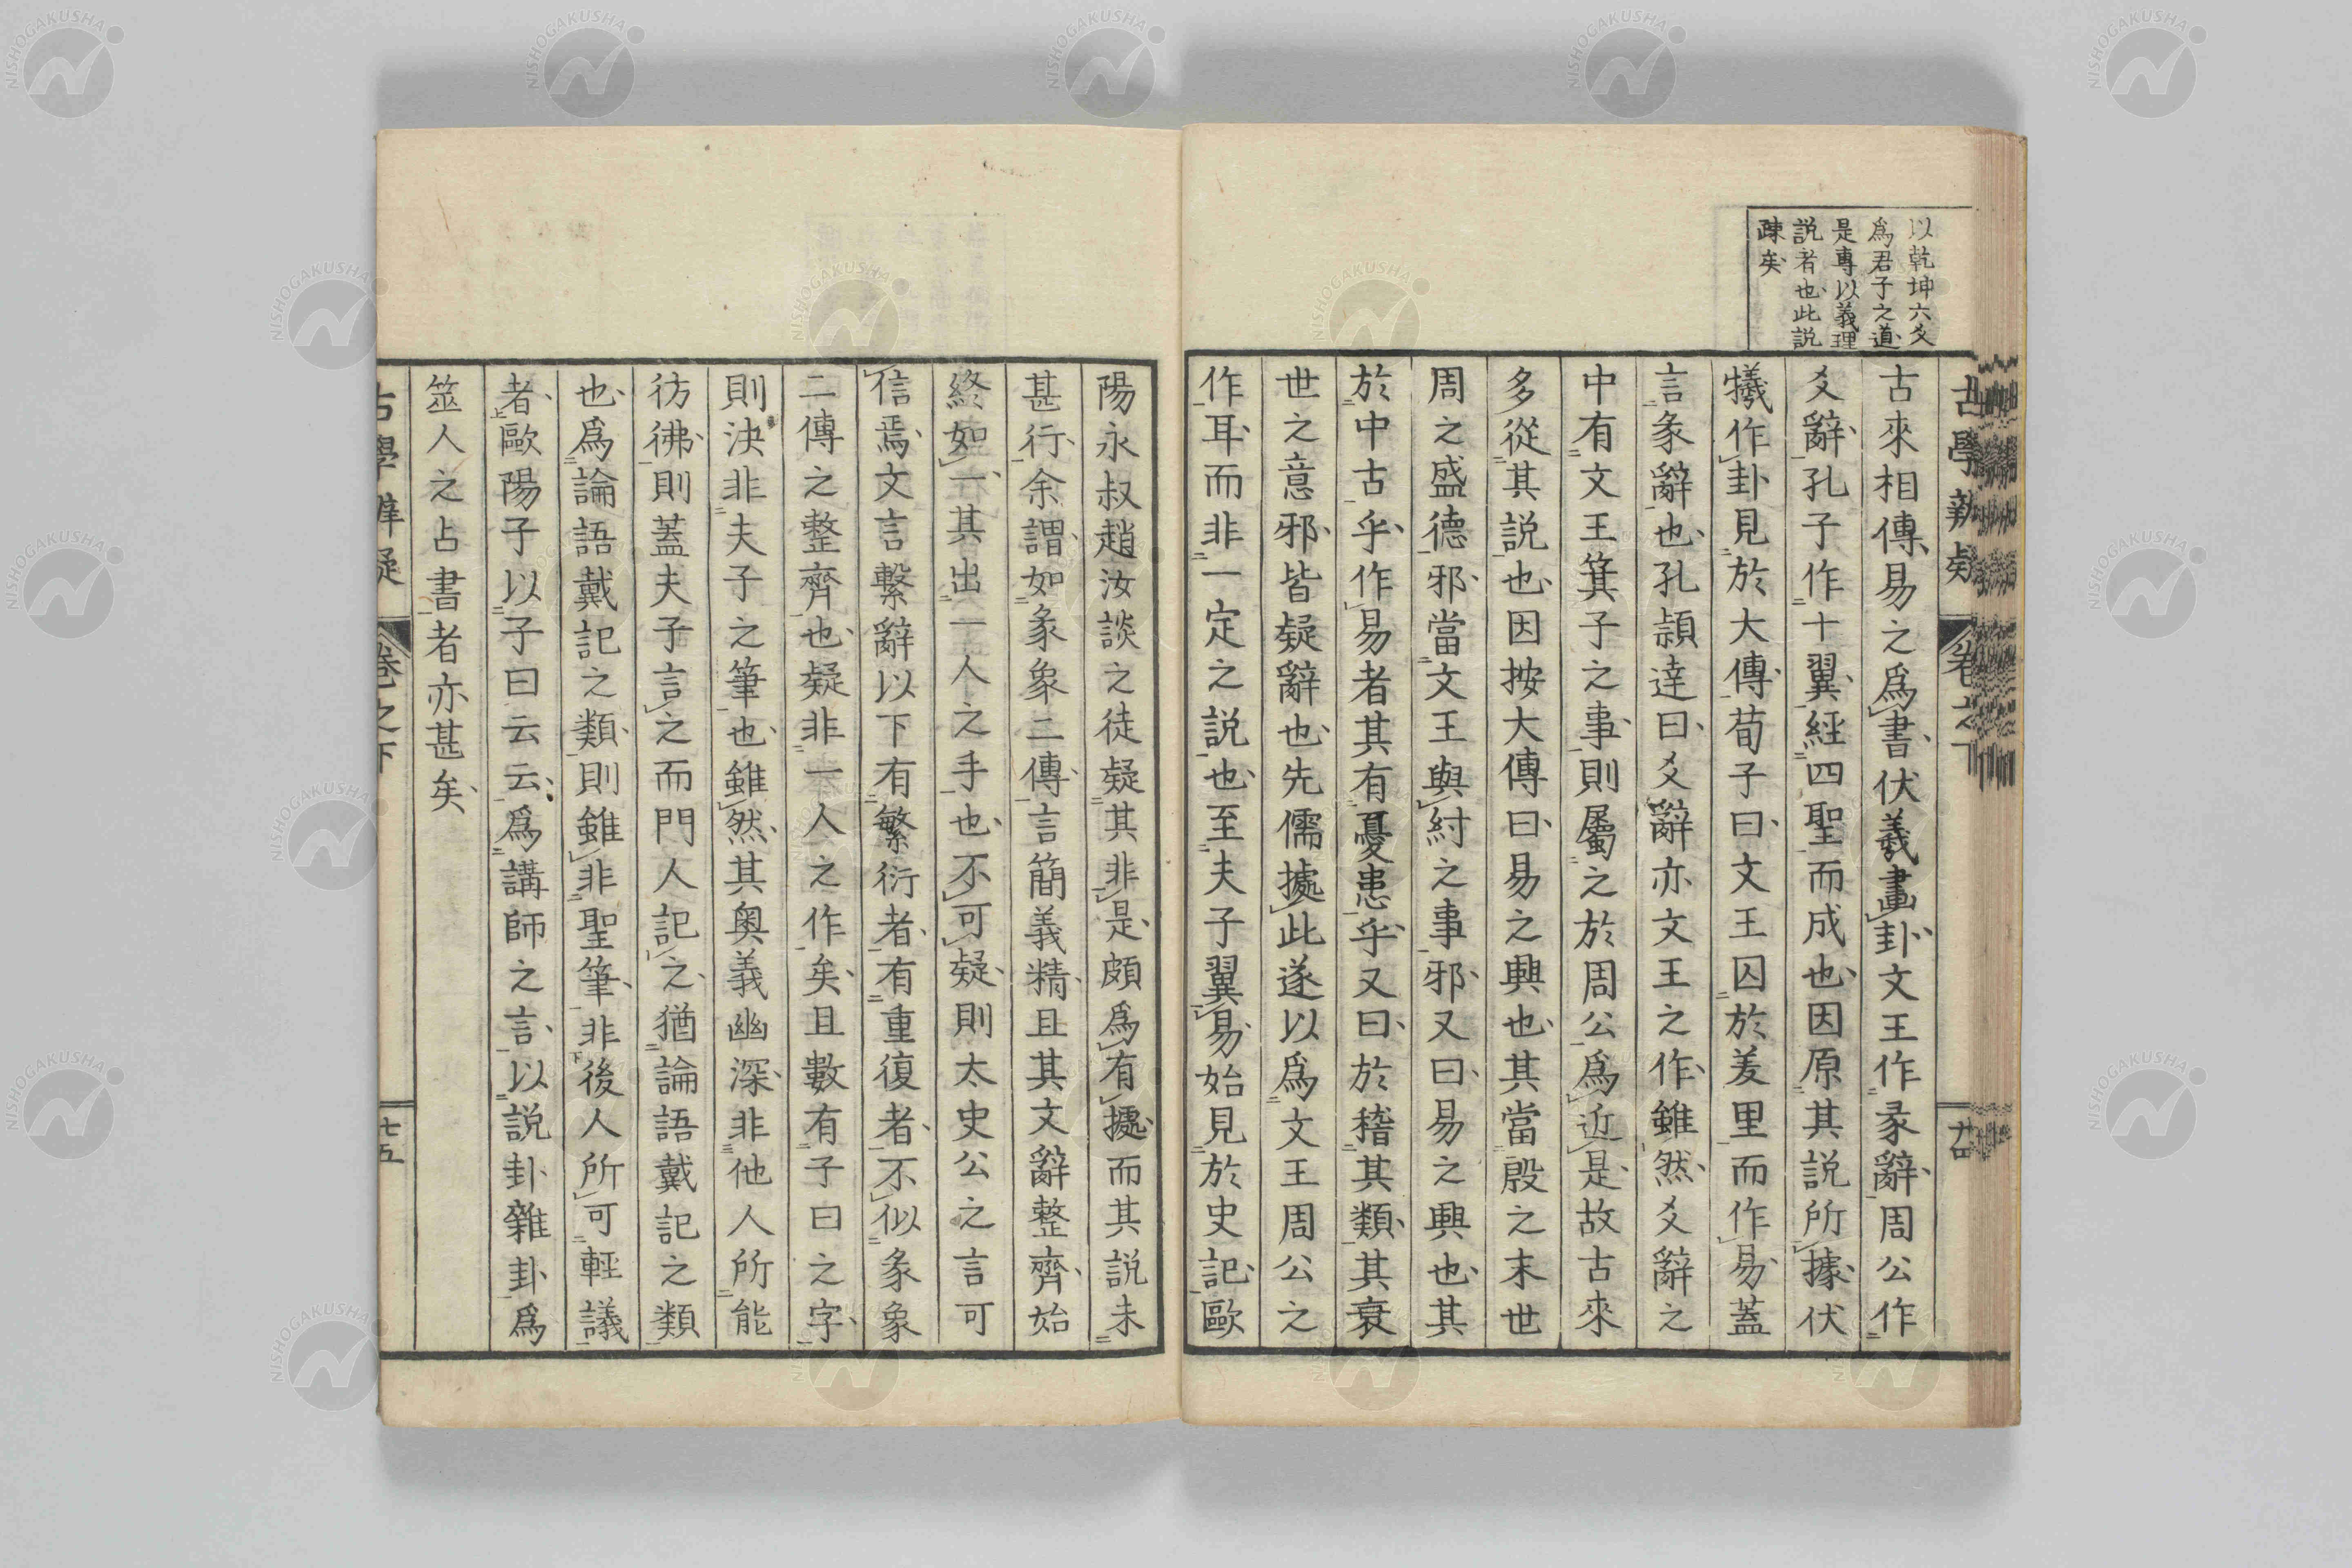 以乾坤六爻
爲君子之道
是專以義理
説者也此説
疎矣
古來相傳易之爲書伏羲畫卦文王作彖辭周公作
爻辭孔子作十翼經四聖而成也因原其説所據伏
犧作卦見於大傳荀子曰文王囚於羑里而作易蓋
言彖辭也孔頴達曰爻辭亦文王之作雖然爻辭之
中有文王箕子之事則屬之於周公爲近是故古來
多從其説也因按大傳曰易之興也其當殷之末世
周之盛德邪當文王與紂之事邪又曰易之興也其
於中古乎作易者其有憂患乎又曰於稽其類其衰
世之意邪皆疑辭也先儒據此遂以爲文王周公之
作耳而非一定之説也至夫子翼易始見於史記歐
陽永叔趙汝談之徒疑其非是頗爲有據而其説未
甚行余謂如彖象二傳言簡義精且其文辭整齊始
終如一其出一人之手也不可疑則太史公之言可
信焉文言繫辭以下有繁衍者有重復者不似彖象
二傳之整齊也疑非一人之作矣且數有子曰之字
則決非夫子之筆也雖然其奧義幽深非他人所能
彷彿則蓋夫子言之而門人記之猶論語戴記之類
也爲論語戴記之類則雖非聖筆非後人所可輕議
者歐陽子以子曰云云爲講師之言以説卦雜卦爲
筮人之占書者亦甚矣
古學辨疑
卷之下
七五